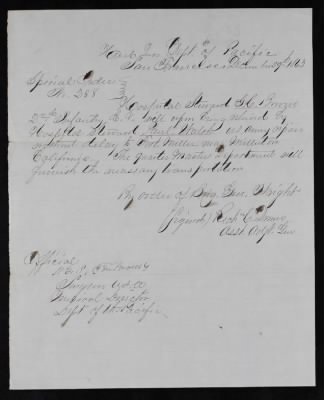 Head Qrs Dept of Pacific
San Francisco December 29th 1863
Special Orders
No. 288
Hospital Steward
2nd Infantry C.V. will upon being relieved by
Hospital Steward repair
without delay to Fort Miller near Millerton
California. The Quarter Master Department will
furnish the necessary transportation
By order of Brig. Gen. Wright
(Signed) Rich C. Drum
Asst Adjt. Gen
Official
Surgeon U.S.A.
Medical Director
Dept of the Pacific